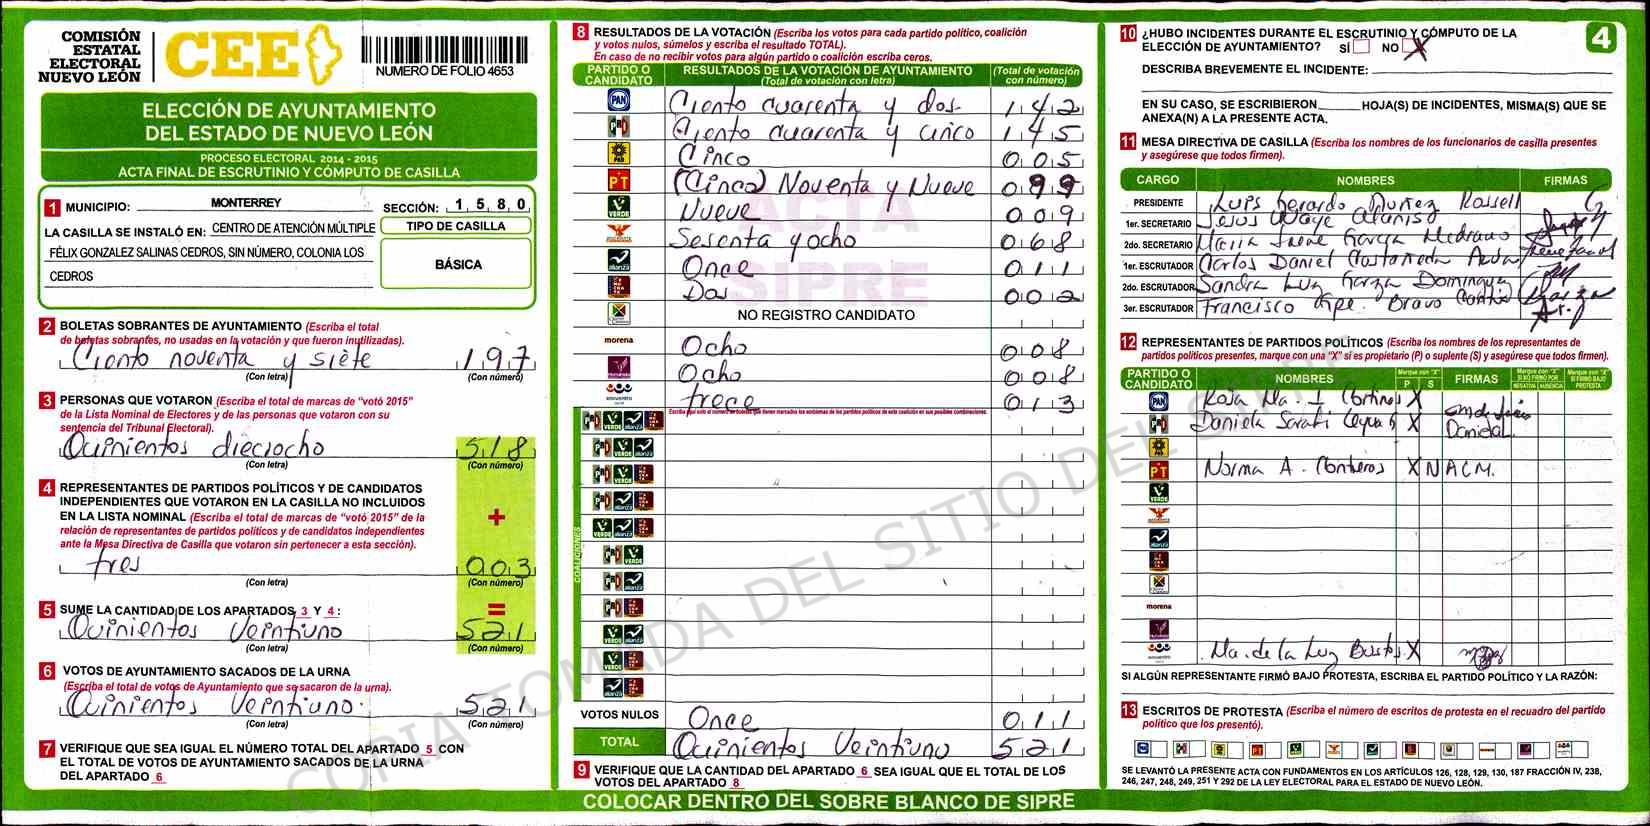 COMISIÓN
ESTATAL
ELECTORAL
NUEVO LEÓN
CEE
NUMERO DE FOLIO 4653
ELECCIÓN DE AYUNTAMIENTO
DEL ESTADO DE NUEVO LEÓN
PROCESO ELECTORAL 2014 - 2015
ACTA FINAL DE ESCRUTINIO Y CÓMPUTO DE CASILLA
1 MUNICIPIO: MONTERREY SECCIÓN: 1 5 8 0
LA CASILLA SE INSTALÓ EN: CENTRO DE ATENCIÓN MÚLTIPLE
FÉLIX GONZALEZ SALINAS CEDROS, SIN NÚMERO, COLONIA LOS
CEDROS
TIPO DE CASILLA
BÁSICA
2 BOLETAS SOBRANTES DE AYUNTAMIENTO (Escriba el total
de boletas sobrantes, no usadas en la votación y que fueron inutilizadas).
Ciento noventa y siete 197
(Con letra) (Con número)
3 PERSONAS QUE VOTARON (Escriba el total de marcas de "votó 2015"
de la Lista Nominal de Electores y de las personas que votaron con su
sentencia del Tribunal Electoral).
Quinientos dieciocho 518
(Con letra) (Con número)
4 REPRESENTANTES DE PARTIDOS POLÍTICOS Y DE CANDIDATOS
INDEPENDIENTES QUE VOTARON EN LA CASILLA NO INCLUIDOS
EN LA LISTA NOMINAL (Escriba el total de marcas de "votó 2015" de la
relación de representantes de partidos políticos y de candidatos independientes
ante la Mesa Directiva de Casilla que votaron sin pertenecer a esta sección).
+
tres 003
(Con letra) (Con número)
5 SUME LA CANTIDAD DE LOS APARTADOS 3 Y 4: =
Quinientos Veintiuno 521
(Con letra) (Con número)
6 VOTOS DE AYUNTAMIENTO SACADOS DE LA URNA
(Escriba el total de votos de Ayuntamiento que se sacaron de la urna).
Quinientos Veintiuno 521
(Con letra) (Con número)
7 VERIFIQUE QUE SEA IGUAL EL NÚMERO TOTAL DEL APARTADO 5 CON
EL TOTAL DE VOTOS DE AYUNTAMIENTO SACADOS DE LA URNA
DEL APARTADO 6
8 RESULTADOS DE LA VOTACIÓN (Escriba los votos para cada partido político, coalición
y votos nulos, súmelos y escriba el resultado TOTAL).
En caso de no recibir votos para algún partido o coalición escriba ceros.
PARTIDO O CANDIDATO RESULTADOS DE LA VOTACIÓN DE AYUNTAMIENTO (Total de votación con letra) (Total de votación con número)
PAN Ciento cuarenta y dos 142
PRD Ciento cuarenta y cinco 145
Cinco 005
PT (Cinco) Noventa y Nueve 099
VERDE Nueve 009
Sesenta y ocho 068
alianza Once 011
Dos 002
NO REGISTRO CANDIDATO
morena Ocho 008
Ocho 008
encuentro trece 013
COALICIONES
VOTOS NULOS Once 011
TOTAL Quinientos Veintiuno 521
9 VERIFIQUE QUE LA CANTIDAD DEL APARTADO 6 SEA IGUAL QUE EL TOTAL DE LOS
VOTOS DEL APARTADO 8
COLOCAR DENTRO DEL SOBRE BLANCO DE SIPRE
ACTA
SIPRE
COPIA TOMADA DEL SITIO DEL SIPRE
10 ¿HUBO INCIDENTES DURANTE EL ESCRUTINIO Y CÓMPUTO DE LA
ELECCIÓN DE AYUNTAMIENTO? SÍ NO X
4
DESCRIBA BREVEMENTE EL INCIDENTE:
EN SU CASO, SE ESCRIBIERON HOJA(S) DE INCIDENTES, MISMA(S) QUE SE
ANEXA(N) A LA PRESENTE ACTA.
11 MESA DIRECTIVA DE CASILLA (Escriba los nombres de los funcionarios de casilla presentes
y asegúrese que todos firmen).
CARGO NOMBRES FIRMAS
PRESIDENTE Luis Gerardo Nuñez Rossell
1er. SECRETARIO Jesus Alanis
2do. SECRETARIO Maria Irene Garza Medrano
1er. ESCRUTADOR Carlos Daniel Castañeda
2do. ESCRUTADOR Sandra Luz Garza Dominguez
3er. ESCRUTADOR Francisco Gpe. Bravo
12 REPRESENTANTES DE PARTIDOS POLÍTICOS (Escriba los nombres de los representantes de
partidos políticos presentes, marque con una "X" si es propietario (P) o suplente (S) y asegúrese que todos firmen).
PARTIDO O CANDIDATO NOMBRES Marque con "X" P S FIRMAS Marque con "X" SI NO FIRMÓ POR NEGATIVA AUSENCIA Marque con "X" SI FIRMÓ BAJO PROTESTA
PAN Rosa Ma. I X
PRD Daniela Sarahi X Daniela
PT Norma A. X NACM.
VERDE
alianza
morena
encuentro Ma. de la Luz Bustos X
SI ALGÚN REPRESENTANTE FIRMÓ BAJO PROTESTA, ESCRIBA EL PARTIDO POLÍTICO Y LA RAZÓN:
13 ESCRITOS DE PROTESTA (Escriba el número de escritos de protesta en el recuadro del partido
político que los presentó).
SE LEVANTÓ LA PRESENTE ACTA CON FUNDAMENTOS EN LOS ARTÍCULOS 126, 128, 129, 130, 187 FRACCIÓN IV, 238,
246, 247, 248, 249, 251 Y 292 DE LA LEY ELECTORAL PARA EL ESTADO DE NUEVO LEÓN.